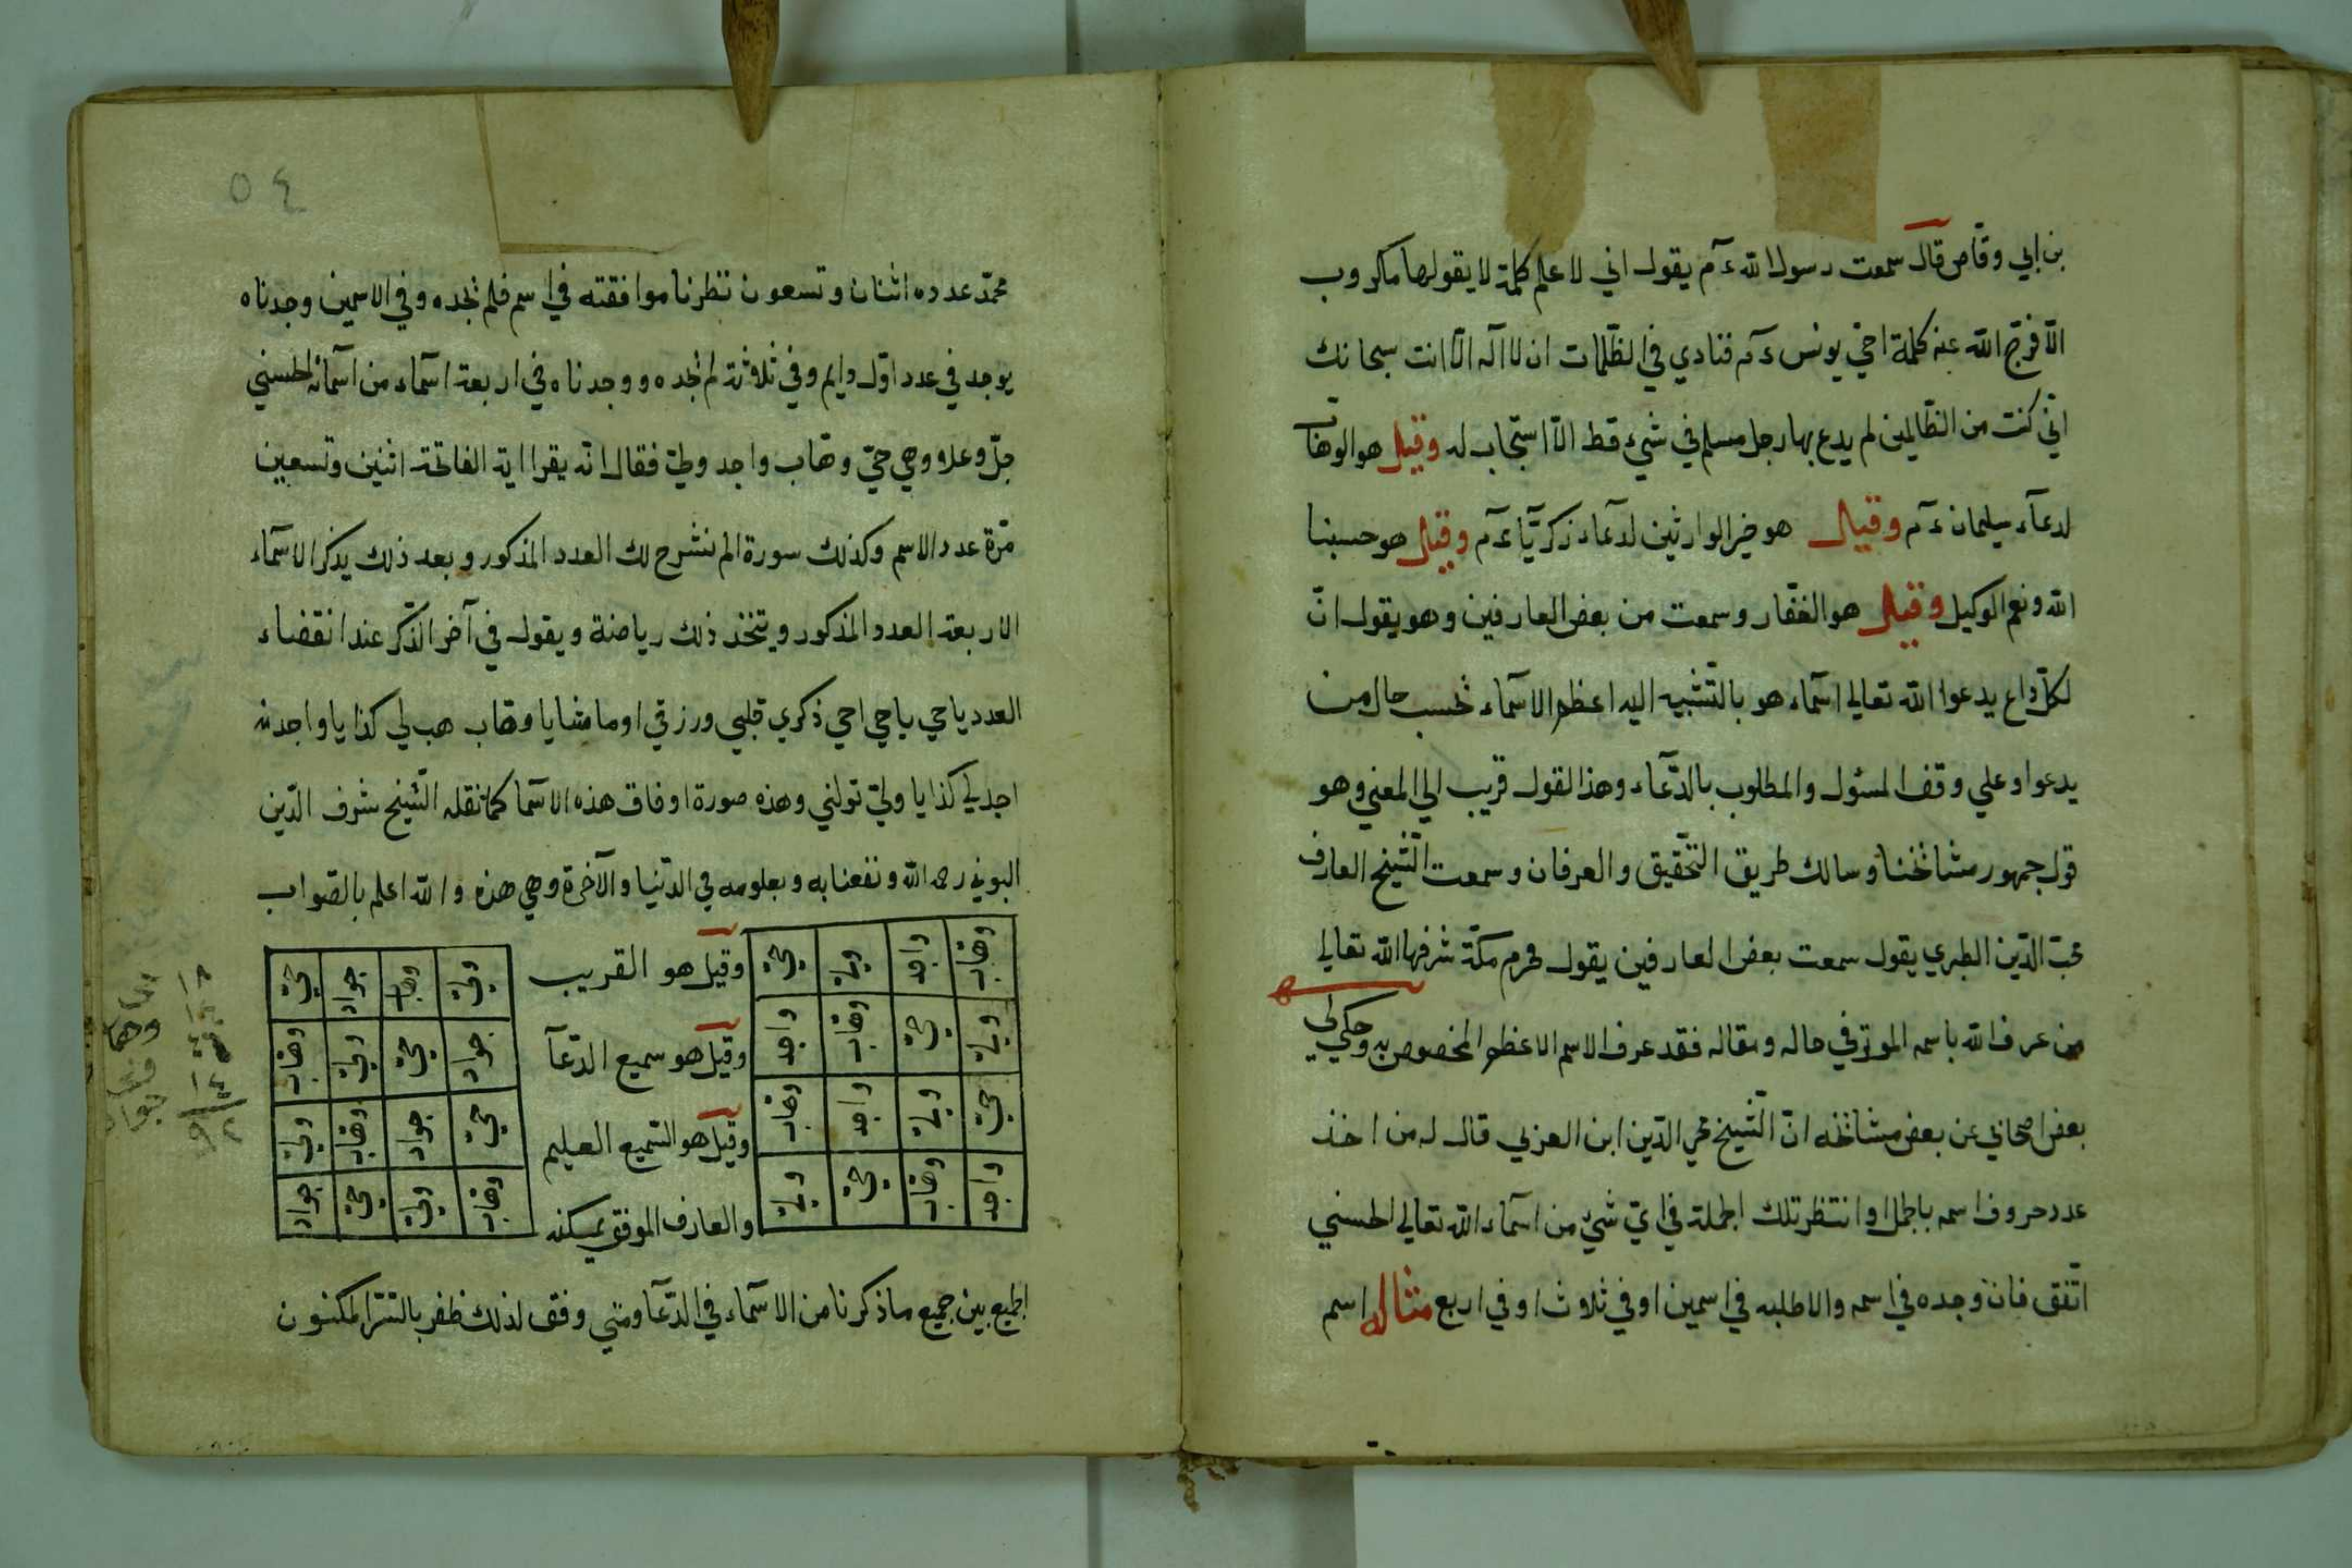 بن ابي وقاص قال سمعت رسول الله ءم يقول اني لاعلم كلمة لا يقولها مكروب
الا فرج الله عنه كلمة اخي يونس ءم فنادي في الظلمات ان لا اله الا انت سبحانك
اني كنت من الظالمين لم يدع بها رجل مسلم في شيء قط الا استجاب له وقيل هو الوهاب
لدعاء سليمان ءم وقيل هو خير الوارثين لدعاء زكريا ءم وقيل هو حسبنا
الله ونعم الوكيل وقيل هو الغفار وسمعت من بعض العارفين وهو يقول ان
لكل داع يدعوا الله تعالي اسماء هو بالتشبيه اليه اعظم الاسماء بحسب حال من
يدعوا وعلي وقف المسئول والمطلوب بالدعاء وهذا القول قريب الي المعني وهو
قول جمهور مشائخنا وسالك طريق التحقيق والعرفان وسمعت الشيخ العارف
محب الدين الطبري يقول سمعت بعض العارفين يقول بحرم مكة شرفها الله تعالي
من عرف الله باسمه الموثر في حاله ومقاله فقد عرف الاسم الاعظم المخصوص به وحكي لي
بعض اصحابي عن بعض مشائخه ان الشيخ محي الدين ابن العربي قال له من اخذ
عدد حروف اسمه بالجمل وانتظر تلك الجملة في اي شيء من اسماء الله تعالي الحسني
اتفق فان وجده في اسم والا طلبه في اسمين او في ثلاث او في اربع مثاله اسم
٥٤
محمد عدده اثنان وتسعون نظرنا موافقته في اسم فلم نجده وفي الاسمين وجدناه
يوجد في عدد اول دايم وفي ثلاثة لم نجده ووجدناه في اربعة اسماء من اسمائه الحسني
جل وعلا وهي حي وهاب واجد ولي فقال انه يقرا اية الفاتحة اثنين وتسعين
مرة عدد الاسم وكذلك سورة الم نشرح لك العدد المذكور وبعد ذلك يذكر الاسماء
الاربعة العدد المذكور ويتخذ ذلك رياضة ويقول في آخر الذكر عند انقضاء
العدد يا حي يا حي احي ذكري قلبي ورزقي او ما شا يا وهاب هب لي كذا يا واجد
اجد لي كذا يا ولي تولني وهذه صورة اوفاق هذه الاسما كما نقله الشيخ شرف الدين
البوني رحمه الله ونفعنا به وبعلومه في الدنيا والآخرة وهي هذه والله اعلم بالصواب
وهاب واجد ولي حي
ولي حي وهاب واجد
حي ولي واجد وهاب
واجد وهاب حي ولي
وقيل هو القريب
وقيل هو سميع الدعآ
وقيل هو السميع العليم
والعارف الموفق يمكنه
ولي وهاب جواد حي
جواد حي ولي وهاب
حي جواد وهاب ولي
وهاب ولي حي جواد
الجميع بين جميع ما ذكرنا من الاسماء في الدعآ ومتي وفق لذلك ظفر بالسر المكنون